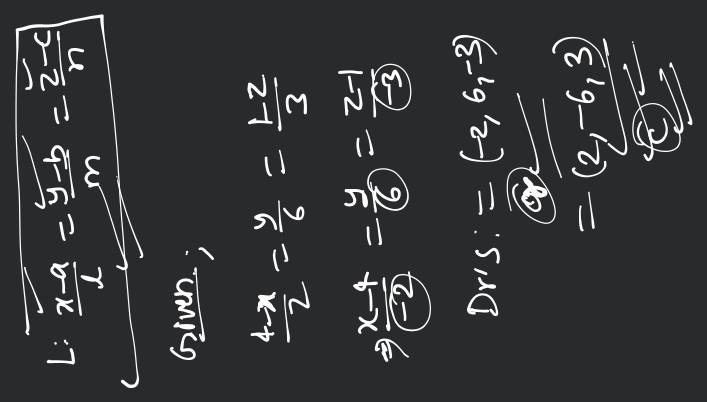 L: x-a/l = y-b/m = z-c/n
Given;
4-x/2 = y/6 = 1-z/3
⇒ x-4/-2 = y/6 = z-1/-3
Dr's: = (-2, 6, -3)
or
= (2, -6, 3)
C